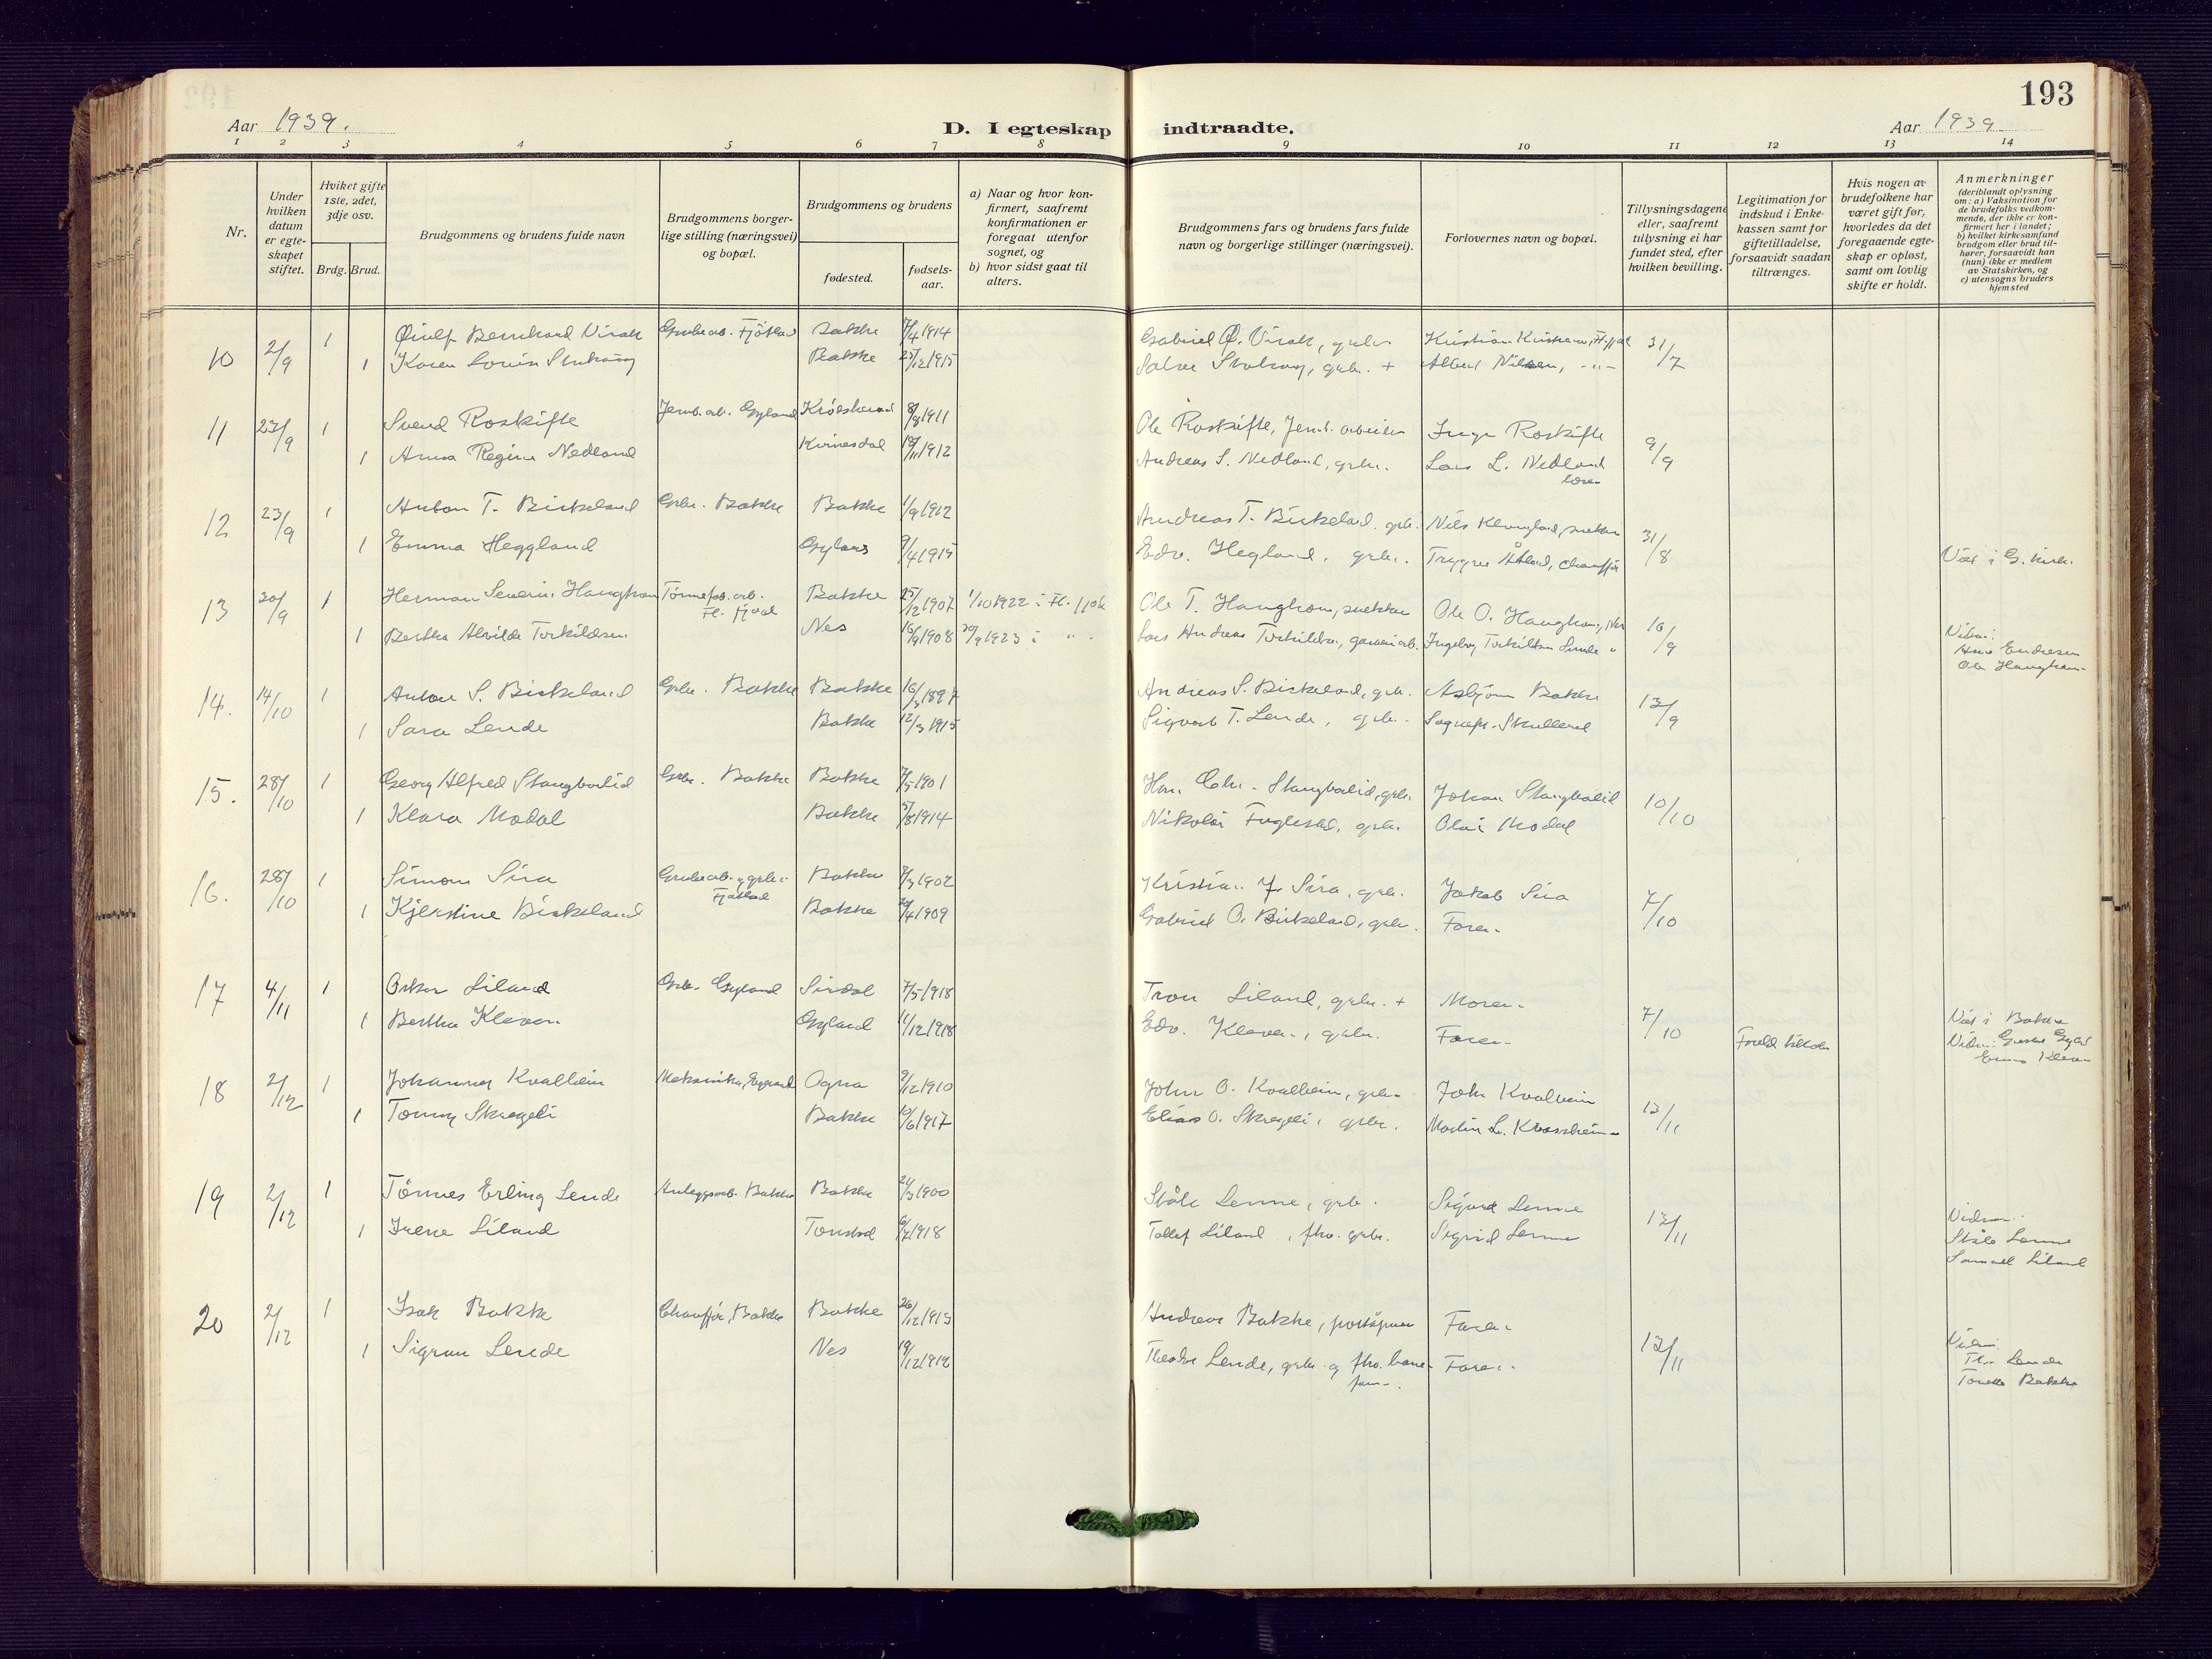 193
Aar 1939.
D. I egteskap indtraadte.
Aar 1939
1 2 3 4 5 6 7 8 9 10 11 12 13 14
Nr.
Under hvilken datum er egteskapet stiftet.
Hvilket gifte 1ste, 2det, 3dje osv.
Brdg. Brud.
Brudgommens og brudens fulde navn
Brudgommens borgerlige stilling (næringsvei) og bopæl.
Brudgommens og brudens
fødested.
fødsels-aar.
a) Naar og hvor konfirmert, saafremt konfirmationen er foregaat utenfor sognet, og
b) hvor sidst gaat til alters.
Brudgommens fars og brudens fars fulde navn og borgerlige stillinger (næringsvei).
Forlovernes navn og bopæl.
Tillysningsdagene eller, saafremt tillysning ei har fundet sted, efter hvilken bevilling.
Legitimation for indskud i Enkekassen samt for giftetilladelse, forsaavidt saadan tiltrænges.
Hvis nogen av brudefolkene har været gift før, hvorledes da det foregaaende egteskap er opløst, samt om lovlig skifte er holdt.
Anmerkninger
(deriblandt oplysning om: a) Vaksination for de brudefolks vedkommende, der ikke er konfirmert her i landet; b) hvilket kirkesamfund brudgom eller brud tilhører, forsaavidt han (hun) ikke er medlem av Statskirken, og c) utensogns bruders hjemsted
10 2/9 1 Bernhard Virak Grubearb. Fjotland Bakke 7/4 1914 Gabriel Ø. Virak, grbr. 31/7
1 Karen Bakke 1915 grbr. + Albert Nilsen, -"-
11 23/9 1 Svend Roskifte Jernb.arb. Gyland Krødsherad 8/8 1911 Ole Roskifte, Jernb. arbeider Inga Roskifte 9/9
1 Anna Regine Nedland Kvinesdal 1912 Andreas S. Nedland, grbr. Lars L. Nedland
12 23/9 1 Anton T. Birkeland Grbr. Bakke Bakke 1/9 1912 Andreas T. Birkeland, grbr. Nils snekker 31/8
1 Emma Heggland Gyland 9/4 1915 Edv. Hegland, grbr. Trygve Åtland, chauffør Viet i G. kirke
13 30/9 1 Herman Severin Haughom Tønnefab.arb. Fl. fjord Bakke 25/12 1907 1/10 1922 i Fl. fjord Ole T. Haughom, snekker Ole O. Haughom, Nes 16/9
1 Bertha Alvilde Torkildsen Nes 16/9 1908 30/9 1923 i " " Lars Andreas Torkildsen, garveriarb. Ingeborg Torkildsen Lunde "
Ole Haughom
14. 14/10 1 Anton S. Birkeland Grbr. Bakke Bakke 16/3 1897 Andreas S. Birkeland, grbr. Asbjørn Bakke 13/9
1 Sara Lende Bakke 12/3 1915 Sigvart T. Lende, grbr.
15. 28/10 1 Georg Alfred Stangborlid Grbr. Bakke Bakke 7/5 1901 Stangborlid, grbr. Johan Stangborlid 10/10
1 Klara Modal Bakke 5/8 1914 Nikolai Fuglestad, grbr. Olai Modal
16. 28/10 1 Simon Sira Grubearb. og grbr. Fjotland Bakke 7/3 1902 Kristian J. Sira, grbr. Jakob Sira 7/10
1 Kjerstine Birkeland Bakke 1909 Gabriel O. Birkeland, grbr. Faren
17 4/11 1 Oskar Liland Grb. Gyland Sirdal 7/5 1918 Tron Liland, grbr. + Moren 7/10
1 Bertha Kleven Gyland 11/12 1918 Edv. Kleven, grbr. Faren
Viet i Bakke
18 2/12 1 Johannes Kvalbein Mekaniker, Ogna 9/12 1910 John O. Kvalbein, grbr. John Kvalbein 13/11
1 Tomny Skregeli Bakke 10/6 1917 Elias O. Skregeli, grbr. Martin L. Kvassheim
19 2/12 1 Tønnes Erling Lende Anleggsarb. Bakke Bakke 1900 Ståle Lenne, grb. Sigurd Lenne 13/11
1 Irene Liland Tonstad 1918 Tollef Liland, fhv. grbr. Sigrid Lenne
Ståle Lenne
Samuel Liland
20 2/12 1 Isak Bakke Chauffør, Bakke Bakke 26/12 1913 Andreas Bakke, poståpner Faren 13/11
1 Sigrun Lende Nes 19/12 1919 Theodor Lende, grbr. og fhv. bane- Faren
Lende
Bakke